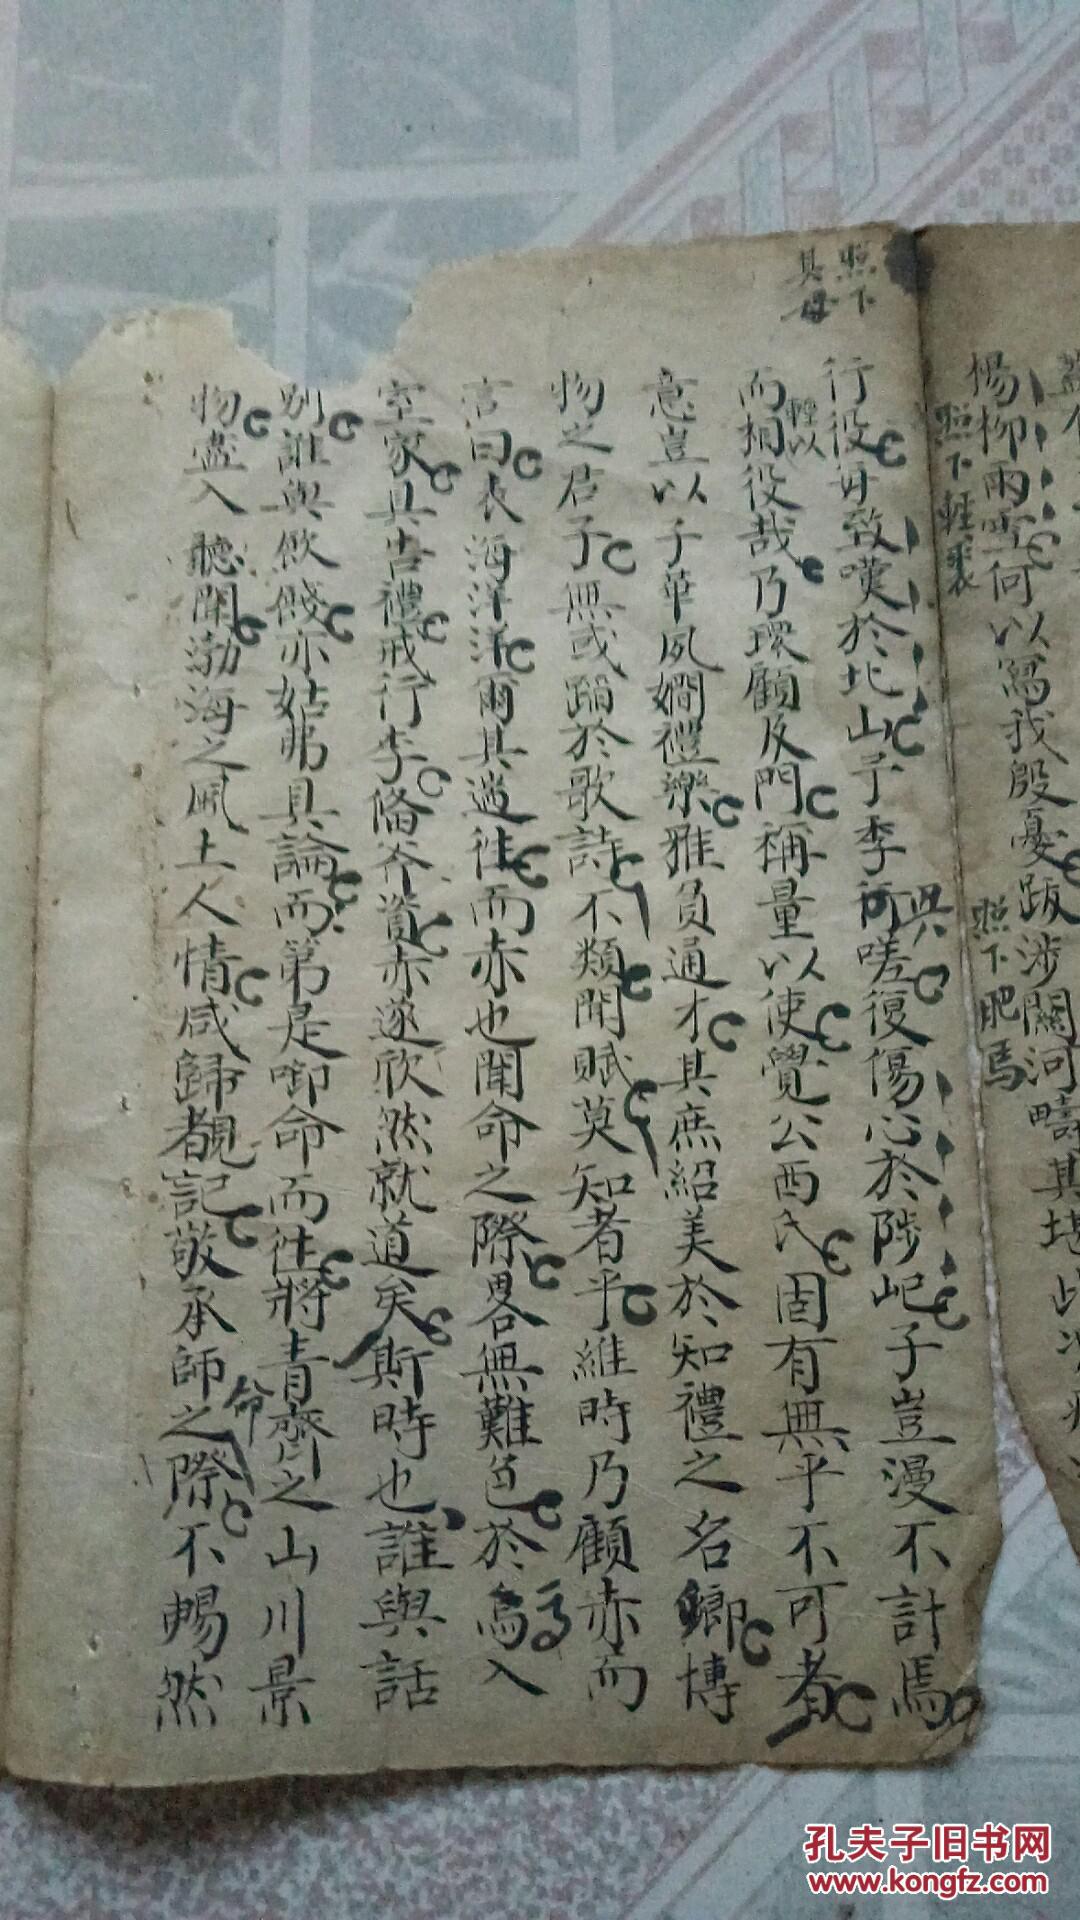 蓋
楊柳雨雪何以寫我殷憂跋涉關河疇其堪此
照下輕裘
照下肥馬
照下
其母
行役毋致嘆於北山予季行嗟復傷心於陟屺子豈漫不計焉
與
而相役哉乃環顧及門稱量以使覺公西氏固有無乎不可者
輕以
意豈以子華夙嫺禮樂雅負通才其庶紹美於知禮之名卿博
物之君子無或蹈於歌詩不類聞賦莫知者乎維時乃顧赤而
言曰表海洋洋爾其邁往而赤也聞命之際畧無難色於焉入
室家具告禮戒行李偹斧資赤遂欣然就道矣斯時也誰與話
別誰與飲餞亦姑弗具論而第是啣命而往將青齊之山川景
物盡入聽聞渤海之風土人情咸歸覩記敬承師之際不暢然
命
孔夫子旧书网
www.kongfz.com